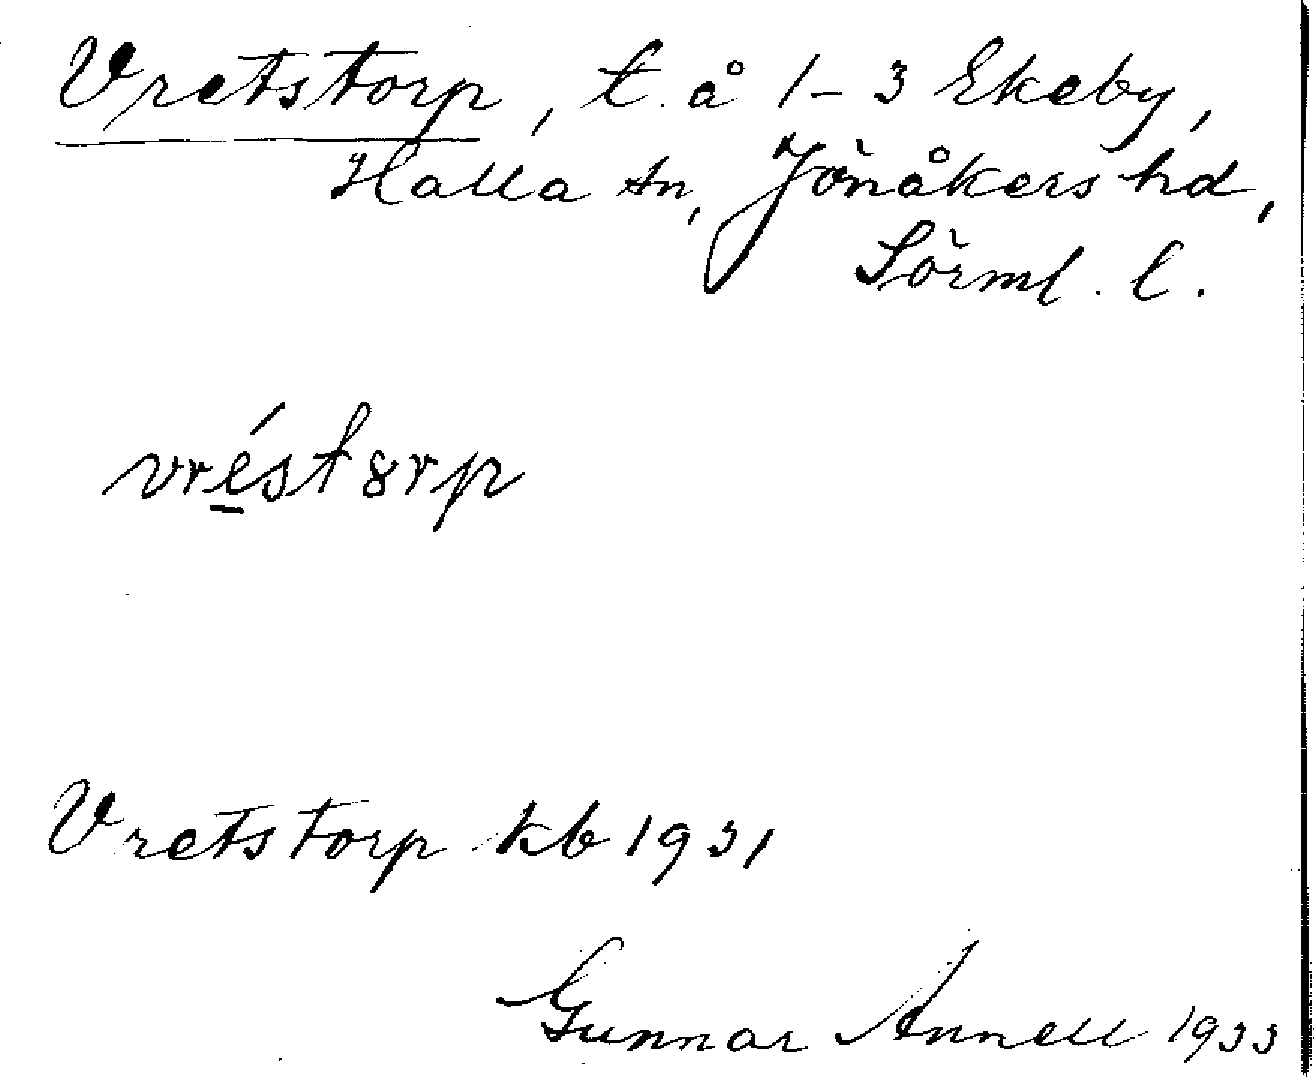 Vretstorp, t. å 1-3 Ekeby,
Halla sn, Jönåkers hd,
Sörml. l.
vréstȣrp
Vretstorp kb 1931
Gunnar Annell 1933